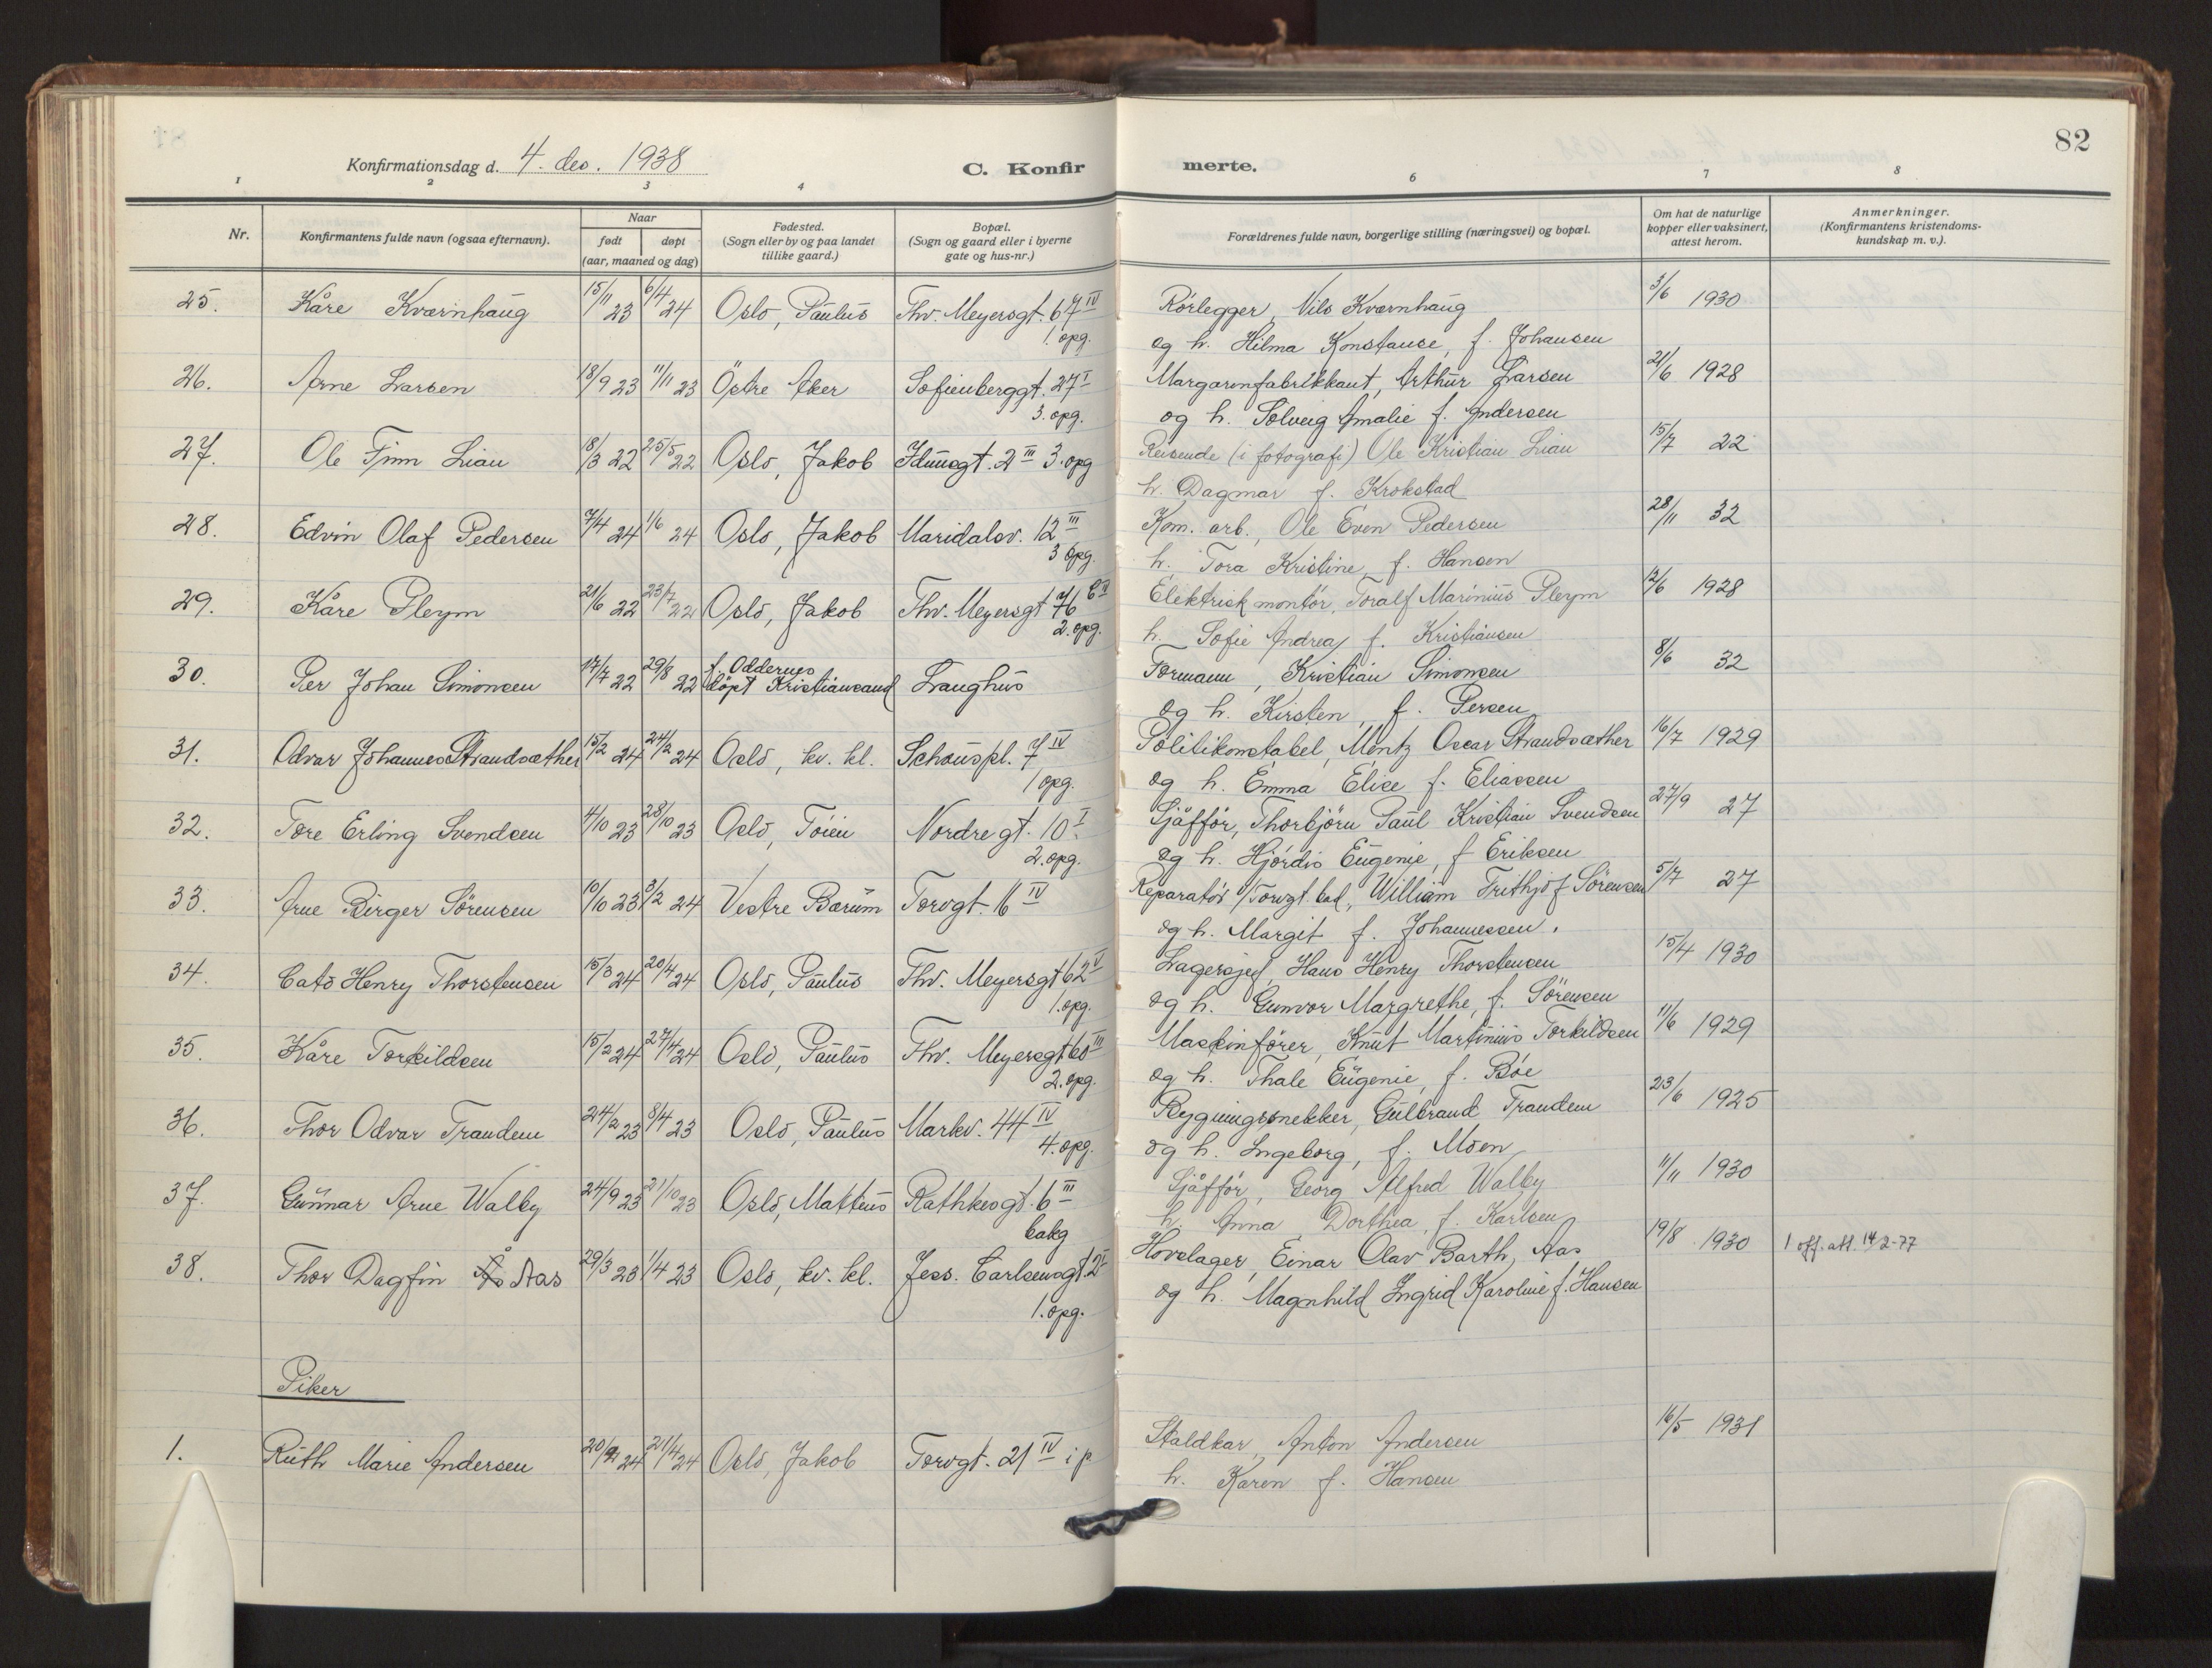 82
Konfirmationsdag d. 4. des. 1938
C. Konfirmerte.
1 2 3 4 6 7 8
Nr.
Konfirmantens fulde navn (ogsaa efternavn).
Naar
født døpt
(aar, maaned og dag)
Fødested.
(Sogn eller by og paa landet
tillike gaard.)
Bopæl.
(Sogn og gaard eller i byerne
gate og hus-nr.)
Forældrenes fulde navn, borgerlige stilling (næringsvei) og bopæl.
Om hat de naturlige
kopper eller vaksinert,
attest herom.
Anmerkninger.
(Konfirmantens kristendoms-
kundskap m. v.).
25. Kåre Kværnhaug 15/11 23 6/4 24 Oslo, Paulus Thv. Meyersgt. 67 IV Rørlegger, Nils Kværnhaug 3/6 1930
1. opg. og h. Hilma Konstanse, f. Johansen
26. Arne Larsen 18/9 23 11/11 23 Östre Aker Sofienberggt. 27 I Margarinfabrikkant, Arthur Larsen 21/6 1928
3. opg. og h. Solveig Amalie f. Andersen
27. Ole Finn Lian 18/3 22 25/5 22 Oslo, Jakob Idunsgt. 2 III 3. opg Reisende (i fotografi) Ole Kristian Lian 15/7 22
h. Dagmar f. Krokstad
28. Edvin Olaf Pedersen 7/4 24 1/6 24 Oslo, Jakob Maridalsv. 12 III Kom. arb., Ole Even Pedersen 28/11 32
3 opg. h. Tora Kristine, f. Hansen
29. Kåre Pleym 21/6 22 23/7 22 Oslo, Jakob Thv. Meyersgt 76 Elektrisk montör, Toralf Marinius Pleym 12/6 1928
2. opg. h. Sofie Andrea, f. Kristiansen
30. Per Johan Simonsen 17/7 22 29/8 22 f. Oddernes
döpt Kristiansand Langhus Formann, Kristian Simonsen 8/6 32
og h. Kirsten, f. Persen
31. Odvar Johannes Strandsæther 15/2 24 24/2 24 Oslo, kv. kl. Schouspl. 7 IV Politikonstabel, Mentz Oscar Strandsæther 16/7 1929
1 opg. og h. Emma Elise f. Eliassen
32. Tore Erling Svendsen 4/10 23 28/10 23 Oslo, Töien Nordregt. 10 I Sjåffør, Thorbjörn Paul Kristian Svendsen 27/9 27
2. opg. og h. Hjördis Eugenie, f Eriksen
33. Arne Birger Sörensen 10/10 23 3/2 24 Vestre Bærum Torvgt. 16 IV Reparatör v/Torvgt. bad, William Frithjof Sörensen 5/7 27
og h. Margit f. Johannessen.
34. Cato Henry Thorstensen 15/3 24 20/4 24 Oslo, Paulus Thv. Meyersgt 62 V Lagersjef, Hans Henry Thorstensen 15/4 1930
1. opg. og h. Gunvor Margrethe, f. Sörensen
35. Kåre Torkildsen 15/2 24 27/4 24 Oslo, Paulus Thv. Meyersgt 60 III Maskinförer, Knut Martinius Torkildsen 11/6 1929
2. opg. og h. Thale Eugenie, f. Böe
36. Thor Odvar Trandem 24/2 23 8/4 23 Oslo, Paulus Markv. 44 IV Bygningssnekker, Gulbrand Trandem 23/6 1925
4. opg. og h. Ingeborg, f. Moen
37. Gunnar Arne Walby 24/9 23 21/10 23 Oslo, Matteus Rathkesgt. 6 III Sjåffør, Georg Alfred Walby 11/11 1930
bakg h. Anna Dorthea, f. Karlsen
38. Thor Dagfin Ås Aas 29/3 23 1/4 23 Oslo, kv. kl. Jess. Carlsensgt. 2 Hovslager, Einar Olav Barth, Aas 19/8 1930 1 off. att. 14/2-77
1. opg. og h. Magnhild Ingrid Karoline f. Hansen
Piker
1. Ruth Marie Andersen 20/2 24 21/4 24 Oslo, Jakob Torvgt. 21 IV i p Staldkar, Anton Andersen 16/5 1931
h. Karen f. Hansen